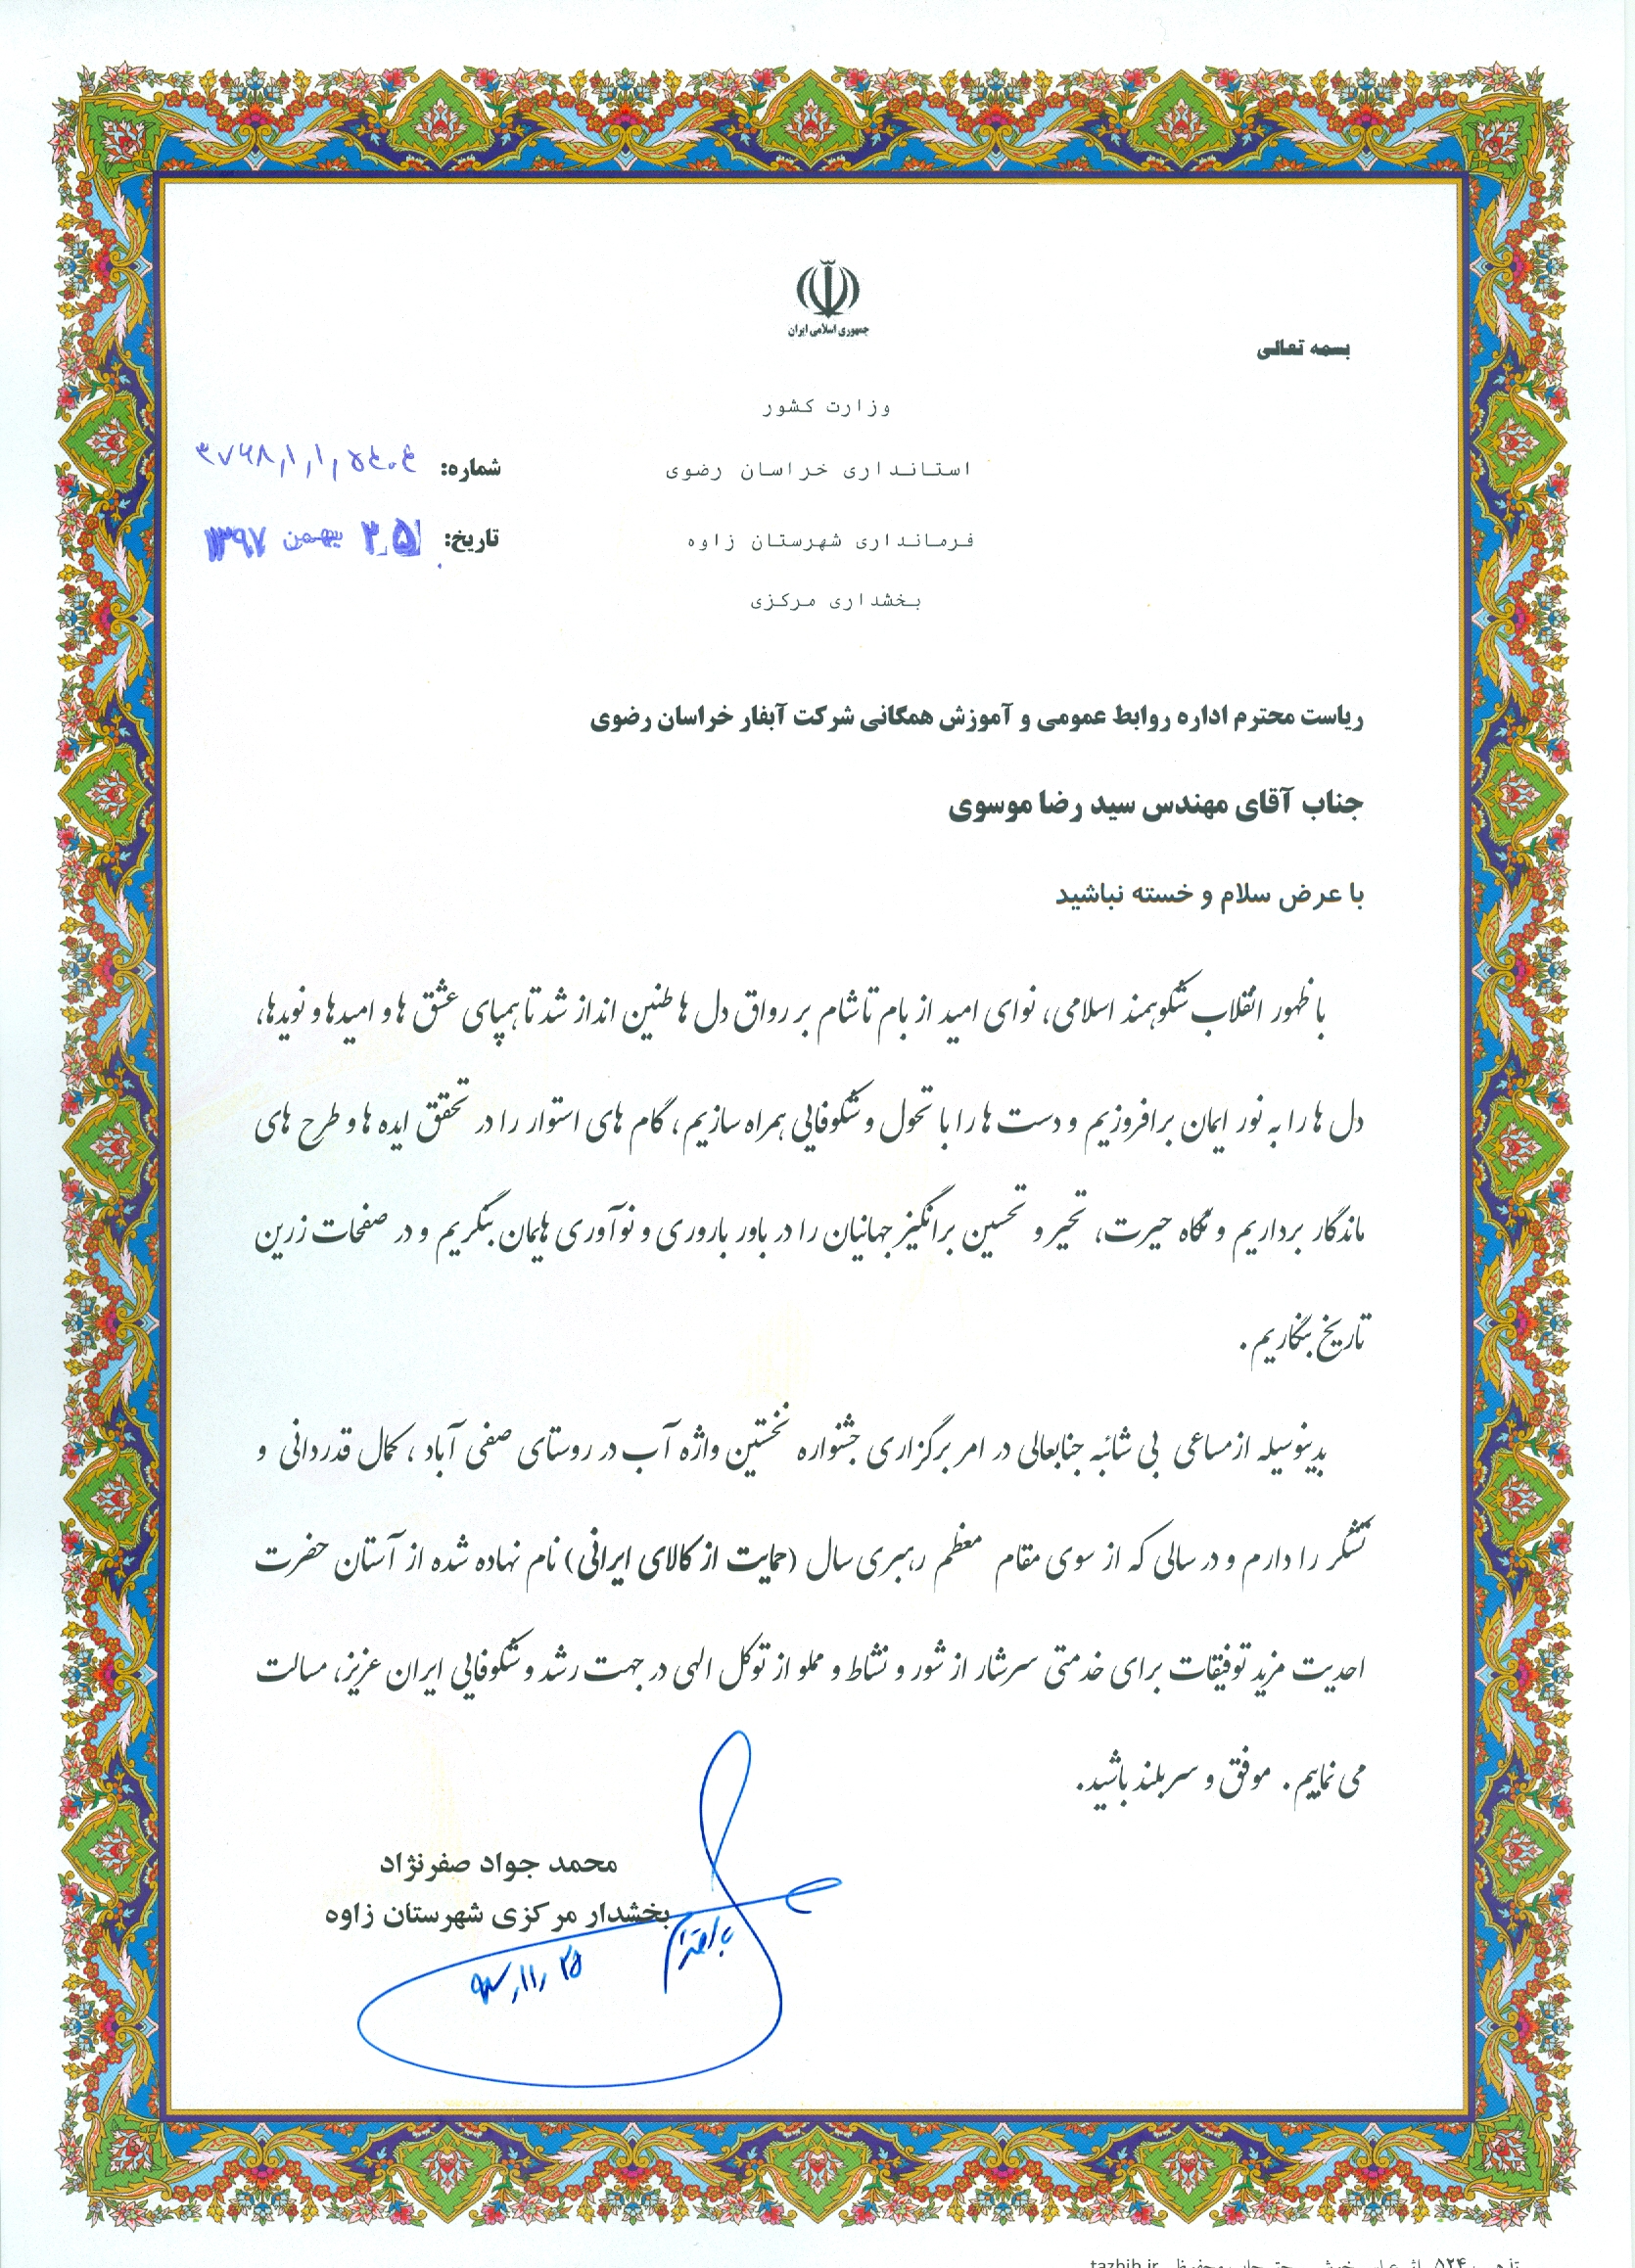 جمهوری اسلامی ایران
بسمه تعالی
وزارت کشور
استانداری خراسان رضوی
شماره:
فرمانداری شهرستان زاوه
تاریخ: ۲۵ بهمن ۱۳۹۷
بخشداری مرکزی
ریاست محترم اداره روابط عمومی و آموزش همگانی شرکت آبفار خراسان رضوی
جناب آقای مهندس سید رضا موسوی
با عرض سلام و خسته نباشید
با ظهور انقلاب شکوهمند اسلامی، نوای امید از بام تا شام بر رواق دل ها طنین انداز شد تا همپای عشق ها و امیدها و نویدها،
دل ها را به نور ایمان برافروزیم و دست ها را با تحول و شکوفایی همراه سازیم، گام های استوار را در تحقق ایده ها و طرح های
ماندگار برداریم و نگاه حیرت، تحیر و تحسین برانگیز جهانیان را در باور باروری و نوآوری هایمان بنگریم و در صفحات زرین
تاریخ بنگاریم .
بدینوسیله از مساعی بی شائبه جنابعالی در امر برگزاری جشنواره نخستین واژه آب در روستای صفی آباد ، کمال قدردانی و
تشکر را دارم و در سالی که از سوی مقام معظم رهبری سال (حمایت از کالای ایرانی) نام نهاده شده از آستان حضرت
احدیت مزید توفیقات برای خدمتی سرشار از شور و نشاط و مملو از توکل الهی در جهت رشد و شکوفایی ایران عزیز، مسالت
می نماییم . موفق و سربلند باشید.
محمد جواد صفرنژاد
بخشدار مرکزی شهرستان زاوه
با احترام
۹۷/۱۱/۲۵
tazhib.ir